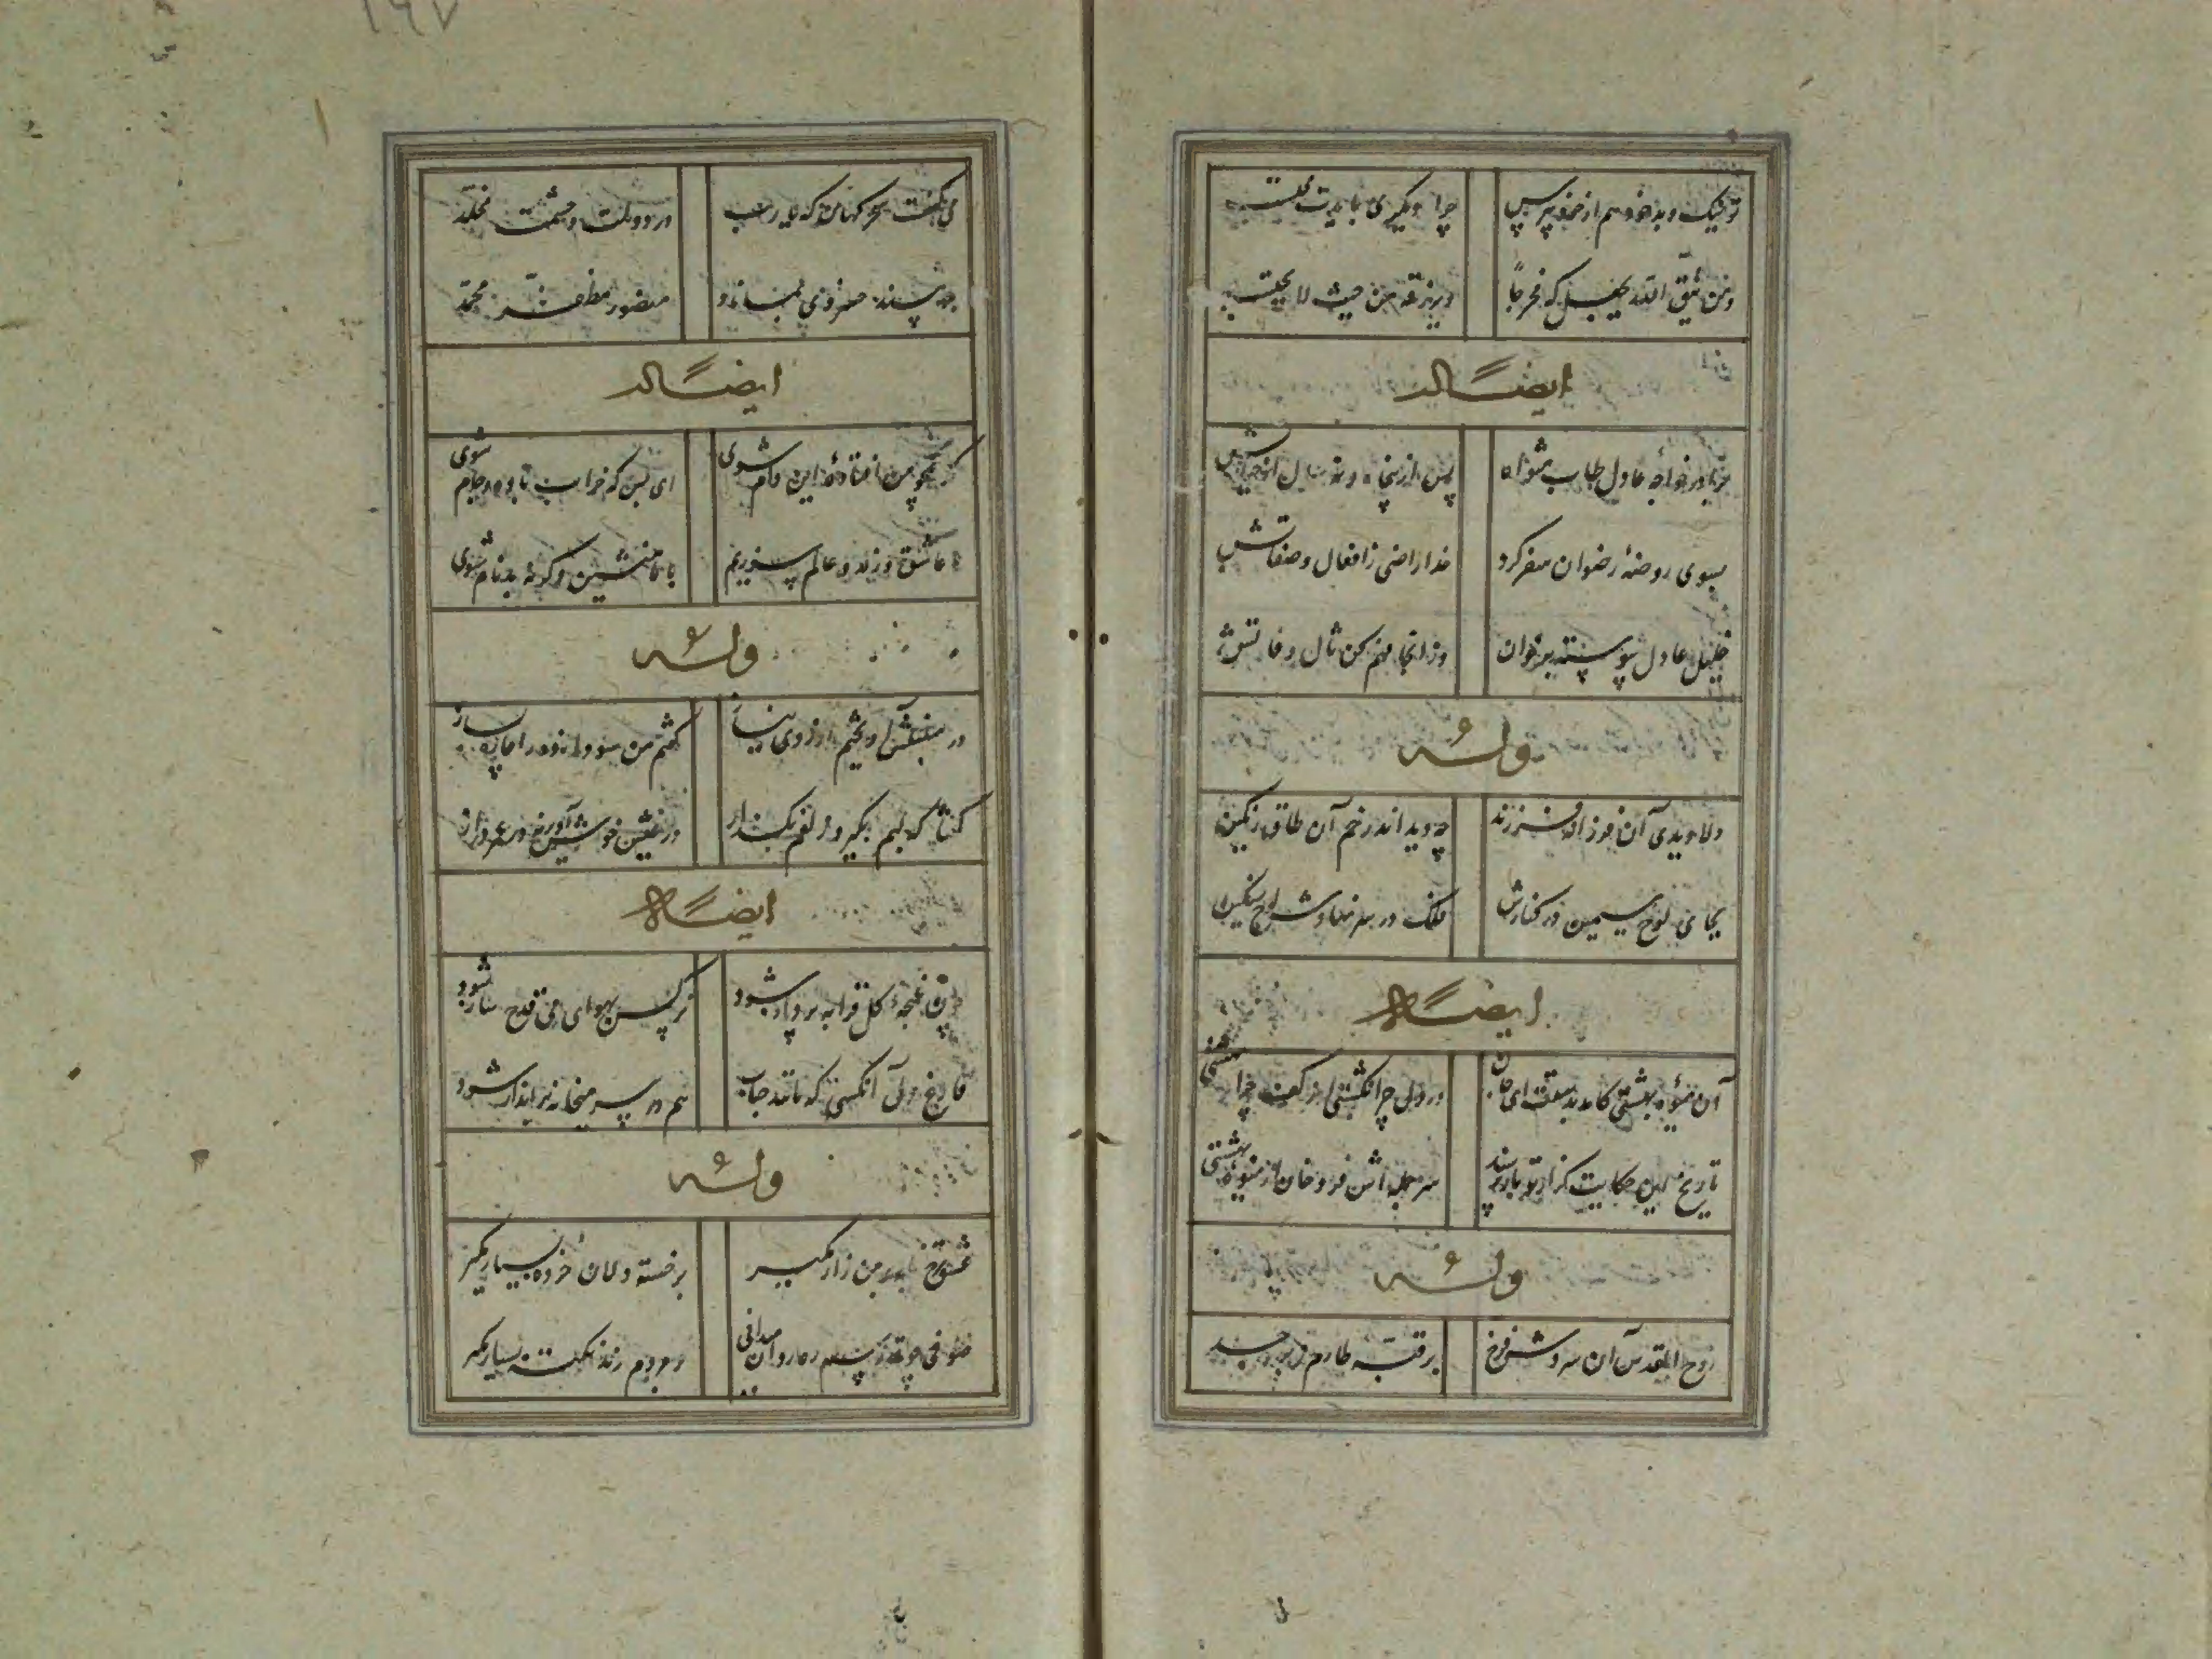 تو نیک و بد خود هم از خود بپرس چرا دیگری بایدت محتسب
و من یتق الله یجعل له مخرجا و یرزقه من حیث لا یحتسب
ایضاً له
برادر خواجه عادل طاب مثواه پس از پنجاه و نه سال از حیاتش
بسوی روضهٔ رضوان سفر کرد خدا راضی ز افعال و صفاتش
خلیل عادل پیوسته برخوان وز انجا فهم کن سال وفاتش
وله
دلا دیدی که آن فرزانه فرزند چه دید اندر خم آن طاق رنگین
بجای لوح سیمین در کنارش فلک در سر نهادش لوح سنگین
ایضاً له
آن میوهٔ بهشتی کامد بدستت ای جان در دل چرا نکشتی از کف چرا بهشتی
تاریخ این حکایت گر از تو باز پرسند سر جمله‌اش فرو خوان از میوهٔ بهشتی
وله
روح القدس آن سروش فرخ بر قبه طارم زبرجد
می‌گفت سحر گهان که یا رب در دولت و حشمت مخلد
بر مسند خسروی بماناد منصور مظفر محمد
ایضاً له
گر همچو من افتادهٔ این دام شوی ای بس که خراب باده و جام شوی
ما عاشق و رند و عالم سوزیم با ما منشین وگرنه بدنام شوی
وله
در سنبلش آویختم از روی نیاز گفتم من سودا زده را چاره بساز
گفتا که لبم بگیر و زلفم بگذار در عیش خوش آویز نه در عمر دراز
ایضاً له
چون غنچهٔ گل قرابه پرداز شود نرگس بهوای می قدح ساز شود
فارغ دل آنکسی که مانند حباب هم در سر میخانه سرانداز شود
وله
عشق رخ یار بر من زار مگیر بر خسته دلان خرده بسیار مگیر
صوفی چو تو رسم رهروان میدانی بر مردم رند نکته بسیار مگیر